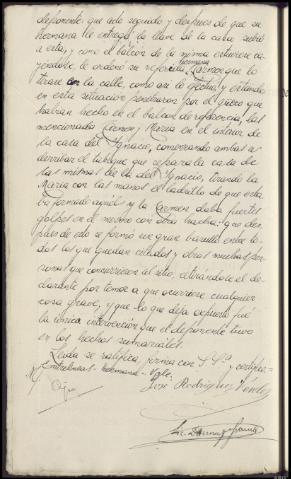 deponente que acto seguido y despues de que su
hermana le entregó la llave de la casa subió
a esta, y como el balcón de la misma estuviera ca-
yendose le ordenó su referida
hermana
Carmen que lo
tirara a la calle, como así lo efectuó y estando
en esta situación penetraron por el hueco que
habian hecho en el balcón de referencia, las
mencionadas Carmen y Maria en el interior de
la casa del Ignacio, comenzando ambas a
derribar el tabique que separaba la casa de
las mismas de la del Ignacio, tirando la
Maria con las manos el ladrillo de que esta-
ba formado aquel y la Carmen daba fuertes
golpes en el mismo con otra hacha: que des-
pués de esto se formó un gran barullo entre to-
dos los que quedan citados y otras muchas per-
sonas que concurrieron al sitio, retirándose el de-
clarante por temor a que ocurriera cualquier
cosa grave, y que lo que deja expuesto fué
la única intervención que el deponente tuvo
en los hechos sumariales.
Leida se ratifica, firma con S.Sª y certifico
Entrelineas = hermana = Vale
José Rodríguez